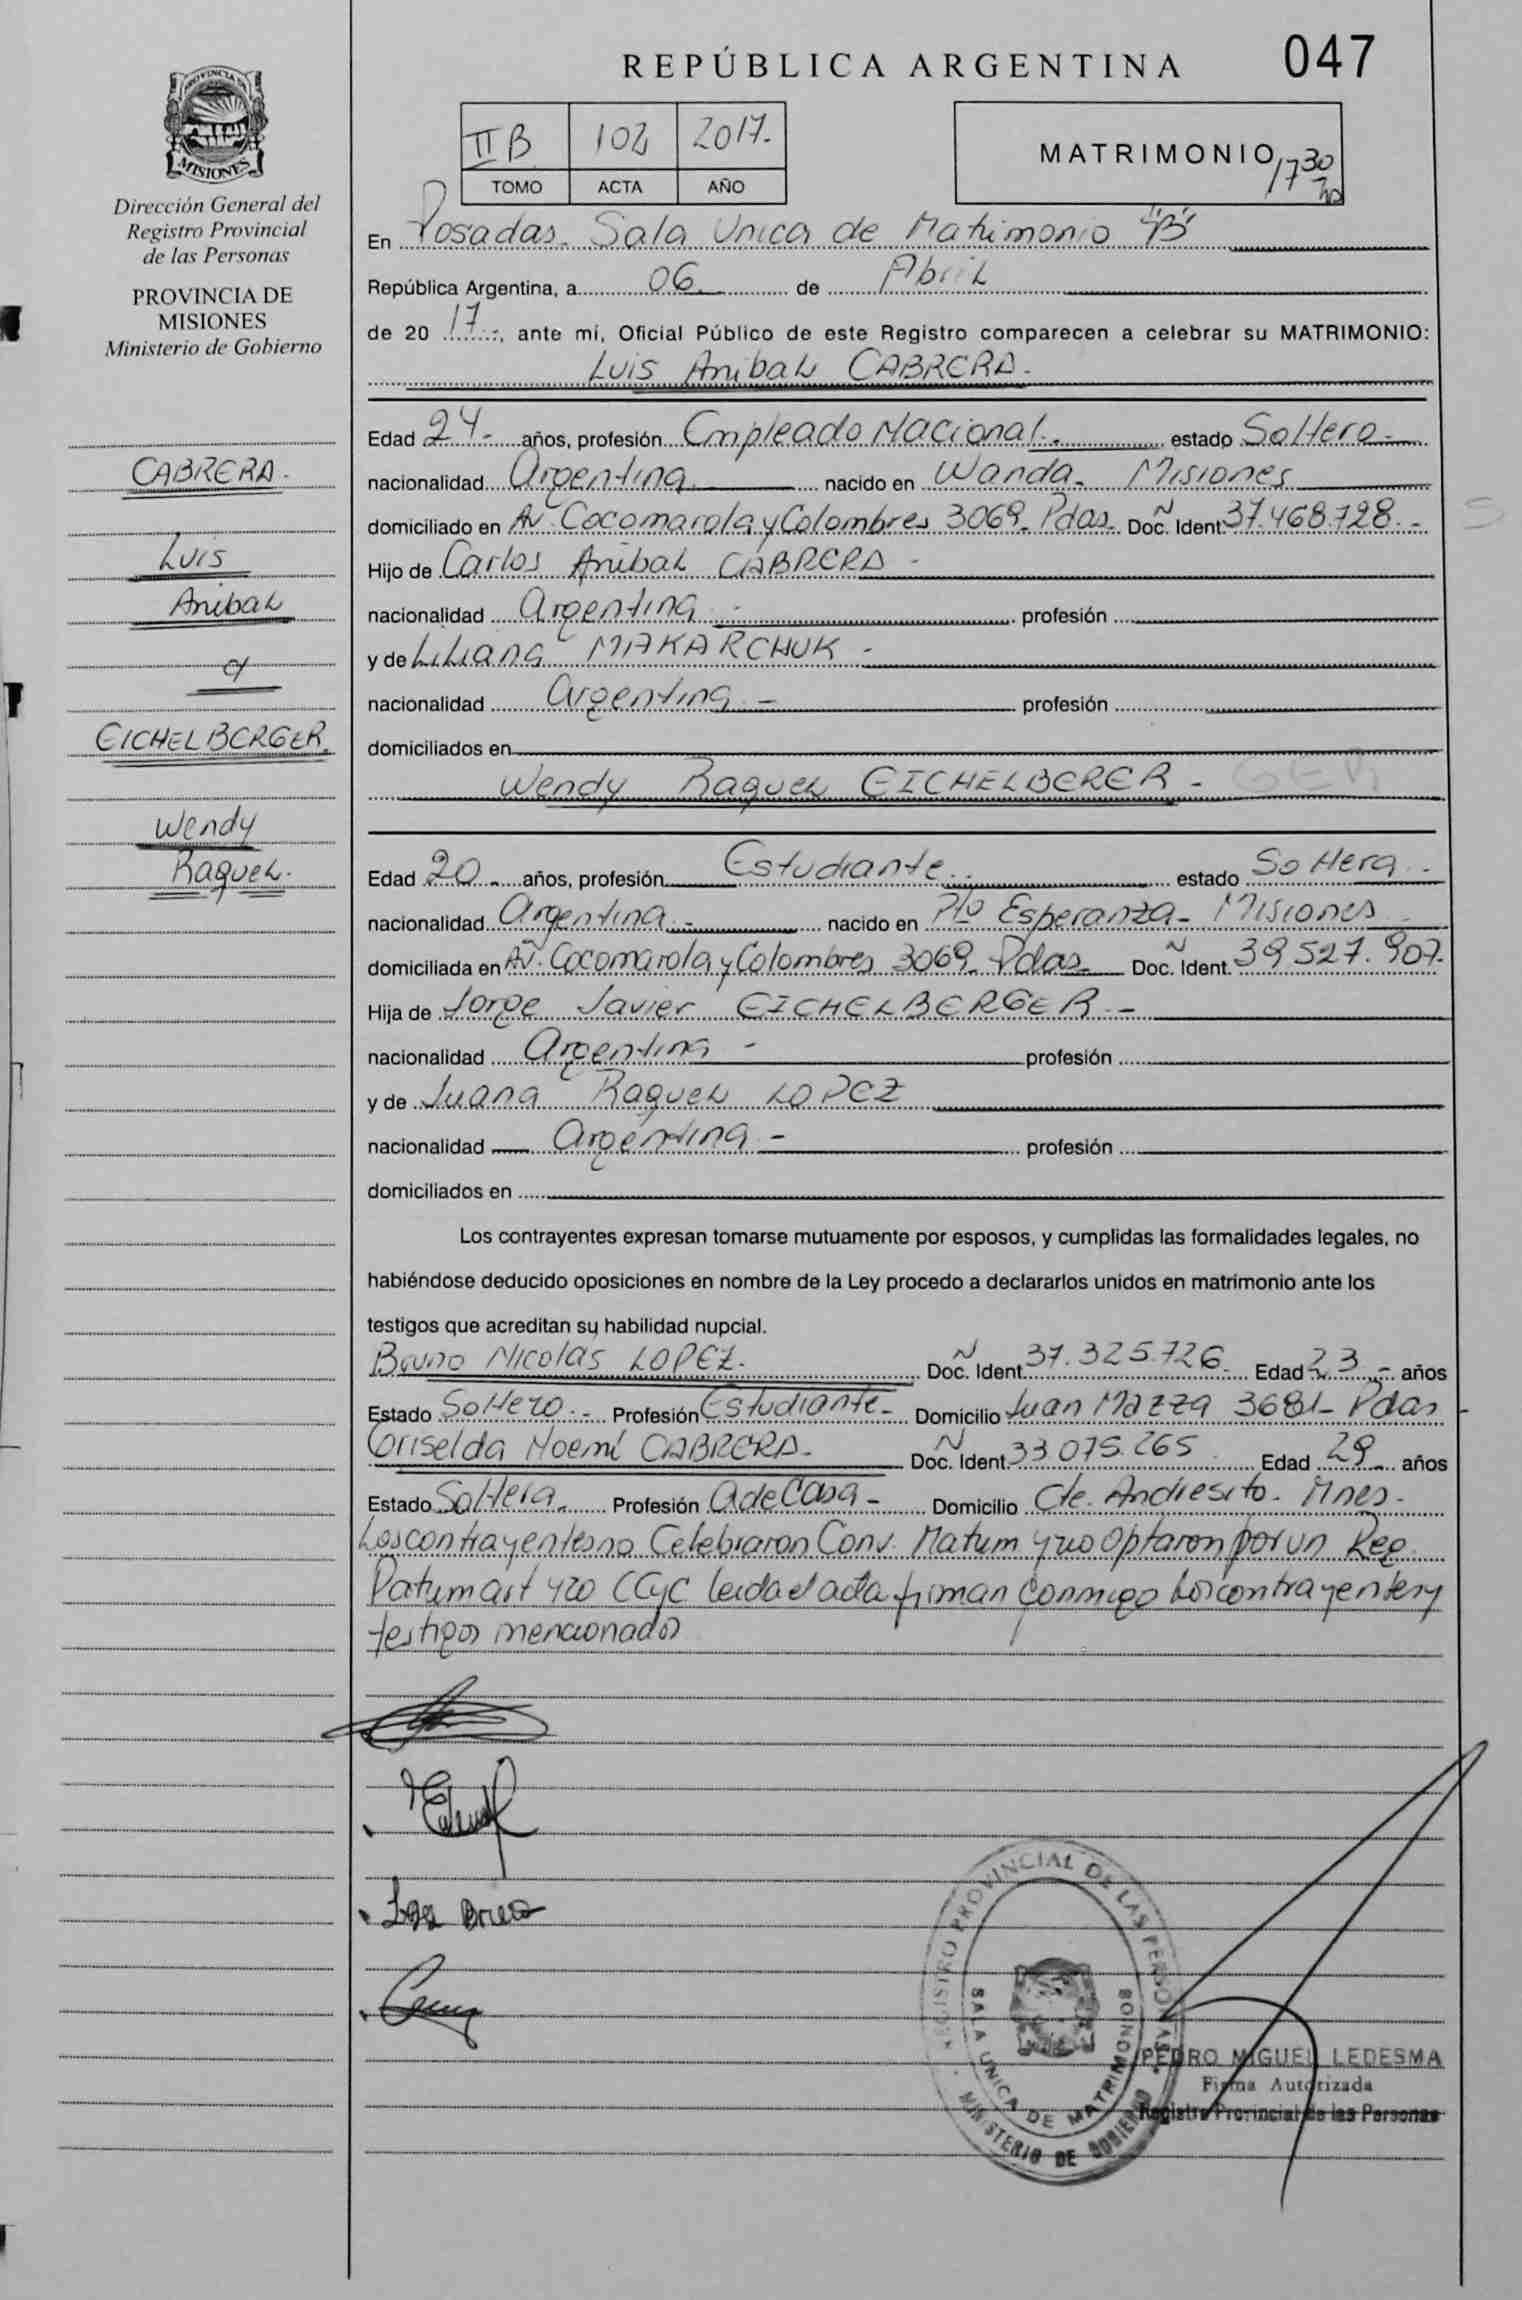 REPÚBLICA ARGENTINA 047
PROVINCIA DE
MISIONES
Dirección General del
Registro Provincial
de las Personas
PROVINCIA DE
MISIONES
Ministerio de Gobierno
II B 102 2017.-
TOMO ACTA AÑO
MATRIMONIO 17 30 hs
En Posadas. Sala Unica de Matrimonio "B"
República Argentina, a 06 de Abril
de 20 17.-, ante mí, Oficial Público de este Registro comparecen a celebrar su MATRIMONIO:
Luis Anibal CABRERA.-
Edad 24.- años, profesión Empleado Nacional.- estado Soltero.-
nacionalidad Argentina nacido en Wanda- Misiones
domiciliado en Av. Cocomarola y Colombres 3069- Pdas- Doc. Ident. Nº 37.468.728.-
Hijo de Carlos Anibal CABRERA -
nacionalidad Argentina.- profesión
y de Liliana MAKARCHUK -
nacionalidad Argentina.- profesión
domiciliados en
Wendy Raquel EICHELBERER - GER
Edad 20.- años, profesión Estudiante.- estado Soltera.-
nacionalidad Argentina.- nacido en Pto Esperanza- Misiones
domiciliada en Av. Cocomarola y Colombres 3069- Pdas- Doc. Ident. Nº 39.527.907.-
Hija de Jorge Javier EICHELBERGER.-
nacionalidad Argentina - profesión
y de Juana Raquel LOPEZ
nacionalidad Argentina.- profesión
domiciliados en
Los contrayentes expresan tomarse mutuamente por esposos, y cumplidas las formalidades legales, no
habiéndose deducido oposiciones en nombre de la Ley procedo a declararlos unidos en matrimonio ante los
testigos que acreditan su habilidad nupcial.
Bruno Nicolás LOPEZ. Doc. Ident. Nº 37.325.726.- Edad 23.- años
Estado Soltero.- Profesión Estudiante- Domicilio Juan Mazza 3681- Pdas
Griselda Noemí CABRERA.- Doc. Ident. Nº 33.075.265 Edad 29 años
Estado Soltera.- Profesión A de Casa- Domicilio Cte. Andresito- Mnes.-
Los contrayentes no Celebraron Conv. Matrim y no optaron por un Reg.
Patrim art 420 CCyC leida el acta firman conmigo los contrayentes y
testigos mencionados
CABRERA.-
Luis
Anibal
c/
EICHELBERGER.
Wendy
Raquel.
REGISTRO PROVINCIAL DE LAS PERSONAS
SALA UNICA DE MATRIMONIOS
MINISTERIO DE GOBIERNO
PEDRO MIGUEL LEDESMA
Firma Autorizada
Registro Provincial de las Personas